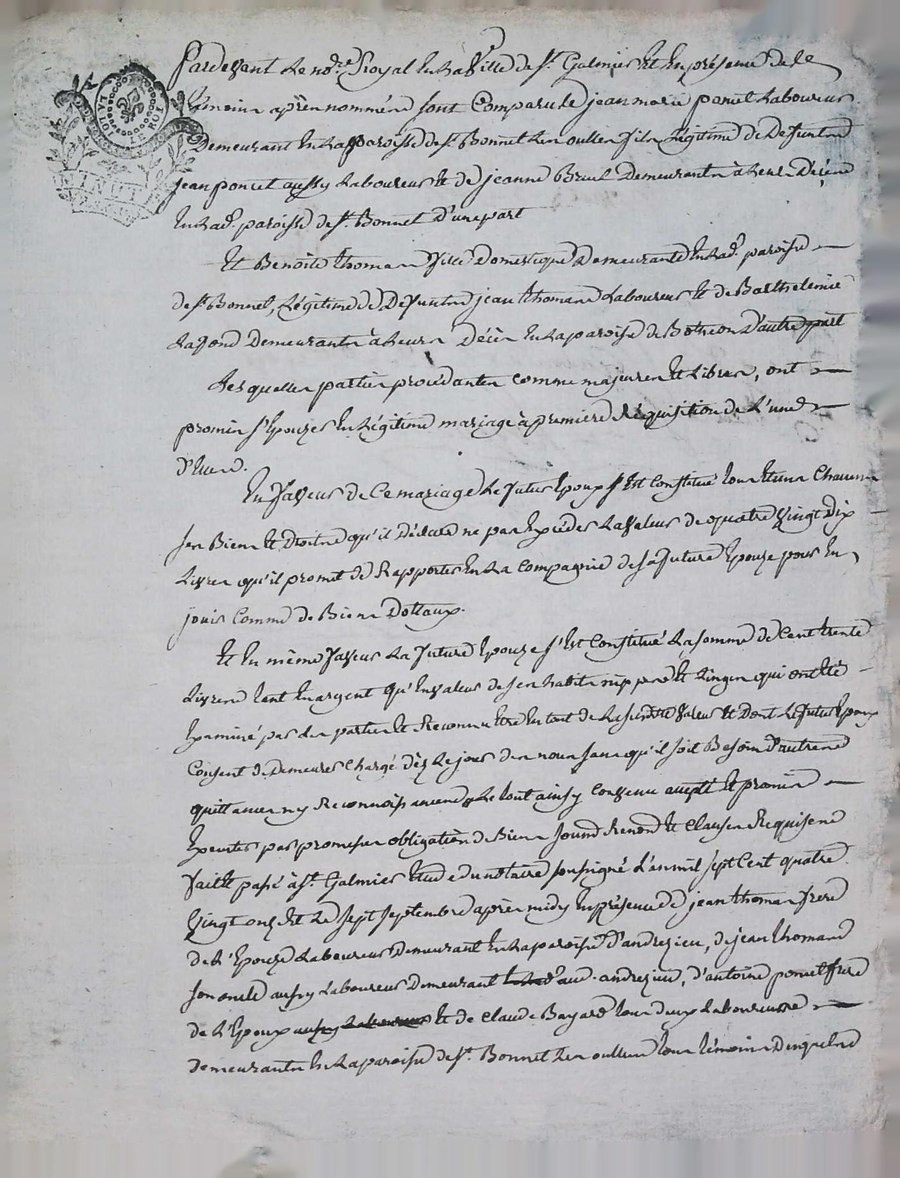 LA LOI LE ROI
Pardevant Le no.re Royal En La Ville de S.t Galmier Et En présence de Le
témoins après nommés sont Comparu Le jean marie poncet Laboureur
Demeurant En La paroisse de S.t Bonnet Les oulles fils Légitime de Defunts
jean poncet aussy Laboureur Et de jeanne Demeurants à Leur Décéd
En Lad. paroisse de S.t Bonnet D'une part
Et Benoite thomas fille Domestique Demeurante En Lad. paroisse
de S.t Bonnet, Légitime de Defunts jean thomas Laboureur Et de Barthelemie
Lafond Demeurants à Leurs Décès En La paroisse de Bothéon D'autre part
Lesquelles parties procédantes comme majeures Et Libres, ont
promis s'Epouzer En Légitime mariage à première Réquisition de L'une
D'Elles.
En faveur de Ce mariage Le futur Epoux s'Est Constitué tous Et uns Chacuns
ses Biens Et Droits qu'il Déclare ne pas Excéder La valeur de quatre Vingt Dix
Livres qu'il promet de Rapporter En La Compagnie de sa future Epouze pour En
jouir Comme de Biens Dottaux.
Et En même faveur La future Epouze s'Est Constitué La somme de Cent trente
Livres tant En argent qu'En valeur de ses habits nippes Et Linges qui ont Eté
Examiné par Les parties Et Reconnu Etre En tout de La susditte valeur Et Dont Le futur Epoux
Consent de Demeurer Chargé dès Le jour des noces sans qu'il soit Besoin D'autres
quittances ny Reconnoissances. Le tout ainsy Convenu accepté Et promis
Executer par promesses obligation de Biens soumis Renon.d Et clauses Requises
fait Et passé à S.t Galmier Etude du notaire soussigné L'an mil sept Cent quatre
Vingt onze Et Le sept septembre après midy En présence de jean thomas frere
de L'Epouze Laboureur Demeurant En La paroisse D'andrezieu, de jean thomas
son oncle aussy Laboureur Demeurant aud. andrezieu, d'antoine poncet frere
de L'Epoux aussy Laboureur Et de Claude Bayard tous deux Laboureurs
demeurants En La paroisse de S.t Bonnet Les oulles tous témoins Desquels